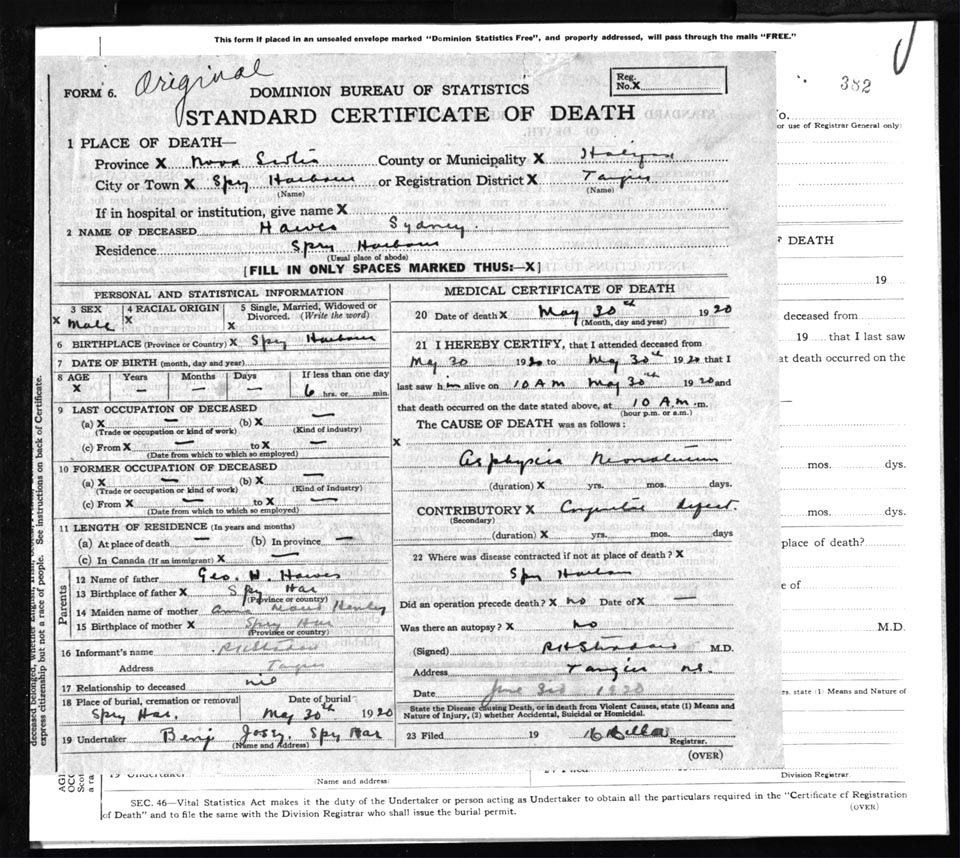 This form if placed in an unsealed envelope marked "Dominion Statistics Free", and properly addressed, will pass through the mails "FREE."
382
FORM 6. Original DOMINION BUREAU OF STATISTICS Reg. No.X
STANDARD CERTIFICATE OF DEATH
1 PLACE OF DEATH—
Province X Nova Scotia County or Municipality X Halifax
City or Town X Spry Harbour or Registration District X Tangier
(Name) (Name)
If in hospital or institution, give name X
2 NAME OF DECEASED Hawes Sydney.
Residence Spry Harbour
(Usual place of abode)
[FILL IN ONLY SPACES MARKED THUS:—X]
PERSONAL AND STATISTICAL INFORMATION
3 SEX 4 RACIAL ORIGIN 5 Single, Married, Widowed or Divorced. (Write the word)
X Male X X
6 BIRTHPLACE (Province or Country) X Spry Harbour
7 DATE OF BIRTH (month, day and year)
8 AGE Years Months Days If less than one day
X — — — 6 hrs. or min.
9 LAST OCCUPATION OF DECEASED
(a) X — (b) X —
(Trade or occupation or kind of work) (Kind of industry)
(c) From X — to X —
(Date from which to which so employed)
10 FORMER OCCUPATION OF DECEASED
(a) X — (b) X —
(Trade or occupation or kind of work) (Kind of Industry)
(c) From X — to X —
(Date from which to which so employed)
11 LENGTH OF RESIDENCE (In years and months)
(a) At place of death — (b) In province —
(c) In Canada (If an immigrant) X —
Parents
12 Name of father Geo. H. Hawes
13 Birthplace of father X Spry Har
(Province or country)
14 Maiden name of mother Anna Maud Henley
15 Birthplace of mother X Spry Har
(Province or country)
16 Informant's name
Address Tangier
17 Relationship to deceased nil
18 Place of burial, cremation or removal Date of burial
Spry Har. May 30th 1920
19 Undertaker Benj Josey Spry Har
(Name and Address)
MEDICAL CERTIFICATE OF DEATH
20 Date of death X May 30th 1920
(Month, day and year)
21 I HEREBY CERTIFY, that I attended deceased from
May 30 1920 to May 30th 1920 that I
last saw him alive on 10 AM May 30th 1920 and
that death occurred on the date stated above, at 10 A.m. .m.
(hour p.m. or a.m.)
The CAUSE OF DEATH was as follows:
X
Asphyxia Neonatorum
(duration) X yrs. mos. days.
CONTRIBUTORY X Congenital defect.
(Secondary)
(duration) X yrs. mos. days
22 Where was disease contracted if not at place of death? X
Spry Harbour
Did an operation precede death? X no Date of X —
Was there an autopsy? X no
(Signed) M.D.
Address Tangier N.S.
Date June 3rd 1920
State the Disease causing Death, or in death from Violent Causes, state (1) Means and
Nature of Injury, (2) whether Accidental, Suicidal or Homicidal.
23 Filed 19
Registrar.
(OVER)
deceased belonged, whether English, Irish,
express citizenship but not a race of people. See instructions on back of Certificate.
o.
or use of Registrar General only)
DEATH
19
deceased from
19 that I last saw
at death occurred on the
mos. dys.
mos. dys.
place of death?
e of
M.D.
es, state (1) Means and Nature of
19 Undertaker
(Name and address)
Division Registrar.
SEC. 46—Vital Statistics Act makes it the duty of the Undertaker or person acting as Undertaker to obtain all the particulars required in the "Certificate of Registration
of Death" and to file the same with the Division Registrar who shall issue the burial permit.
(OVER)